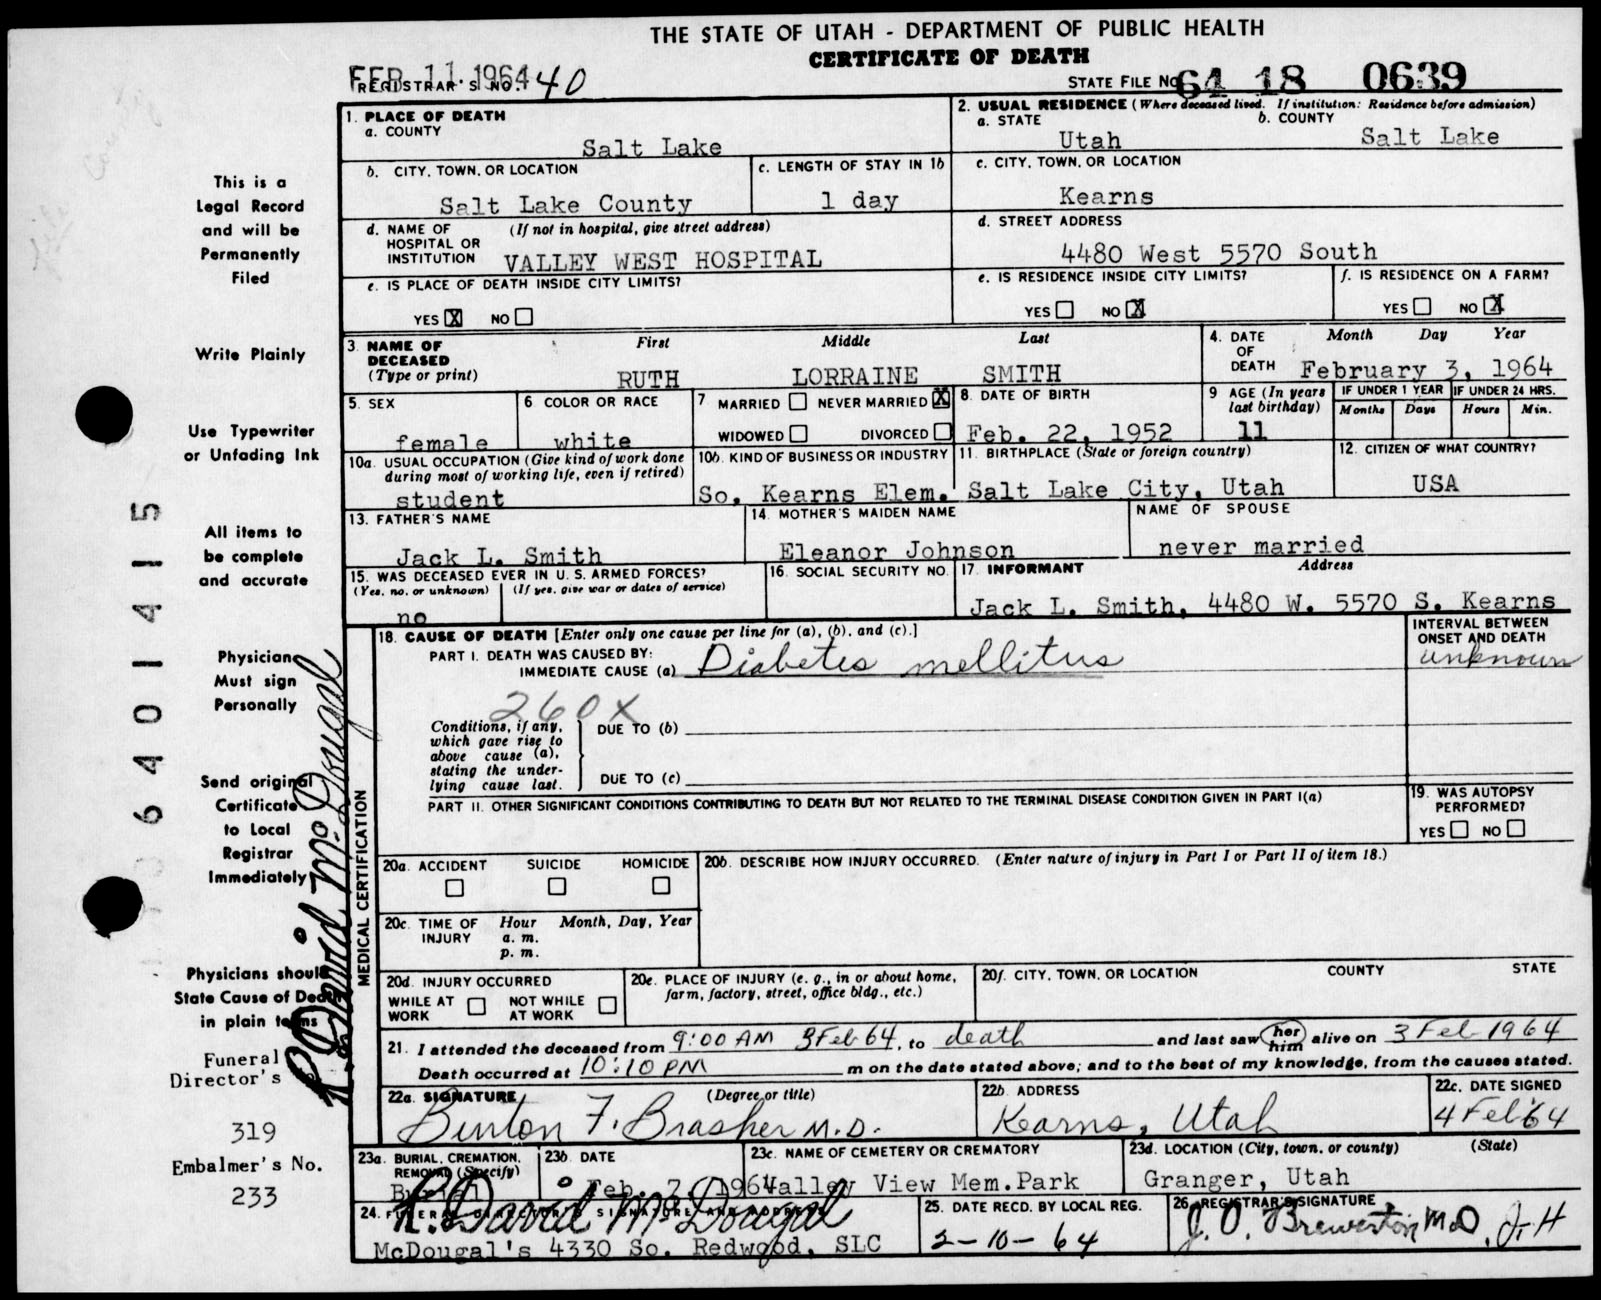 THE STATE OF UTAH - DEPARTMENT OF PUBLIC HEALTH
CERTIFICATE OF DEATH
FEB 11 1964
REGISTRAR'S NO. 40
STATE FILE NO. 64 18 0639
1. PLACE OF DEATH
a. COUNTY
Salt Lake
2. USUAL RESIDENCE (Where deceased lived. If institution: Residence before admission)
a. STATE
Utah
b. COUNTY
Salt Lake
b. CITY, TOWN, OR LOCATION
Salt Lake County
c. LENGTH OF STAY IN 1b
1 day
c. CITY, TOWN, OR LOCATION
Kearns
d. NAME OF HOSPITAL OR INSTITUTION
(If not in hospital, give street address)
VALLEY WEST HOSPITAL
d. STREET ADDRESS
4480 West 5570 South
e. IS PLACE OF DEATH INSIDE CITY LIMITS?
YES X NO
e. IS RESIDENCE INSIDE CITY LIMITS?
YES NO X
f. IS RESIDENCE ON A FARM?
YES NO X
3. NAME OF DECEASED
(Type or print)
First Middle Last
RUTH LORRAINE SMITH
4. DATE OF DEATH
Month Day Year
February 3, 1964
5. SEX
female
6 COLOR OR RACE
white
7 MARRIED NEVER MARRIED X
WIDOWED DIVORCED
8. DATE OF BIRTH
Feb. 22, 1952
9 AGE (In years last birthday)
11
IF UNDER 1 YEAR
Months Days
IF UNDER 24 HRS.
Hours Min.
10a. USUAL OCCUPATION (Give kind of work done during most of working life, even if retired)
student
10b. KIND OF BUSINESS OR INDUSTRY
So. Kearns Elem.
11. BIRTHPLACE (State or foreign country)
Salt Lake City, Utah
12. CITIZEN OF WHAT COUNTRY?
USA
13. FATHER'S NAME
Jack L. Smith
14. MOTHER'S MAIDEN NAME
Eleanor Johnson
NAME OF SPOUSE
never married
15. WAS DECEASED EVER IN U. S. ARMED FORCES?
(Yes, no, or unknown) (If yes, give war or dates of service)
no
16. SOCIAL SECURITY NO.
17. INFORMANT Address
Jack L. Smith, 4480 W. 5570 S. Kearns
18. CAUSE OF DEATH [Enter only one cause per line for (a), (b), and (c).]
PART I. DEATH WAS CAUSED BY:
IMMEDIATE CAUSE (a) Diabetes mellitus
INTERVAL BETWEEN ONSET AND DEATH
unknown
260X
Conditions, if any, which gave rise to above cause (a), stating the underlying cause last.
DUE TO (b)
DUE TO (c)
PART II. OTHER SIGNIFICANT CONDITIONS CONTRIBUTING TO DEATH BUT NOT RELATED TO THE TERMINAL DISEASE CONDITION GIVEN IN PART I(a)
19. WAS AUTOPSY PERFORMED?
YES NO
MEDICAL CERTIFICATION
20a. ACCIDENT SUICIDE HOMICIDE
20b. DESCRIBE HOW INJURY OCCURRED. (Enter nature of injury in Part I or Part II of item 18.)
20c. TIME OF INJURY
Hour Month, Day, Year
a. m.
p. m.
20d. INJURY OCCURRED
WHILE AT WORK NOT WHILE AT WORK
20e. PLACE OF INJURY (e. g., in or about home, farm, factory, street, office bldg., etc.)
20f. CITY, TOWN, OR LOCATION COUNTY STATE
21. I attended the deceased from 9:00 AM 3 Feb 64, to death and last saw her him alive on 3 Feb 1964
Death occurred at 10:10 PM m on the date stated above; and to the best of my knowledge, from the causes stated.
22a. SIGNATURE (Degree or title)
Burton F. Brasher M.D.
22b. ADDRESS
Kearns, Utah
22c. DATE SIGNED
4 Feb 64
23a. BURIAL, CREMATION, REMOVAL (Specify)
Burial
23b. DATE
Feb. 7, 1964
23c. NAME OF CEMETERY OR CREMATORY
Valley View Mem.Park
23d. LOCATION (City, town, or county) (State)
Granger, Utah
24. FUNERAL DIRECTOR'S SIGNATURE AND ADDRESS
R. David McDougal
McDougal's 4330 So. Redwood, SLC
25. DATE RECD. BY LOCAL REG.
2-10-64
26. REGISTRAR'S SIGNATURE
J. O. Brewerton M.D. J-H
This is a
Legal Record
and will be
Permanently
Filed
Write Plainly
Use Typewriter
or Unfading Ink
All items to
be complete
and accurate
Physician
Must sign
Personally
Send original
Certificate
to Local
Registrar
Immediately
Physicians should
State Cause of Death
in plain terms
Funeral
Director's No.
319
Embalmer's No.
233
R. David McDougal
6401415